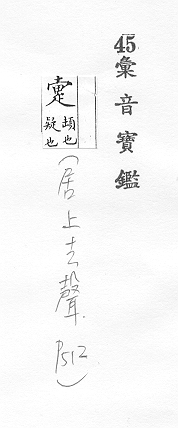 45彙音寶鑑
疐
頓也
疑也
(居上去聲 P512)